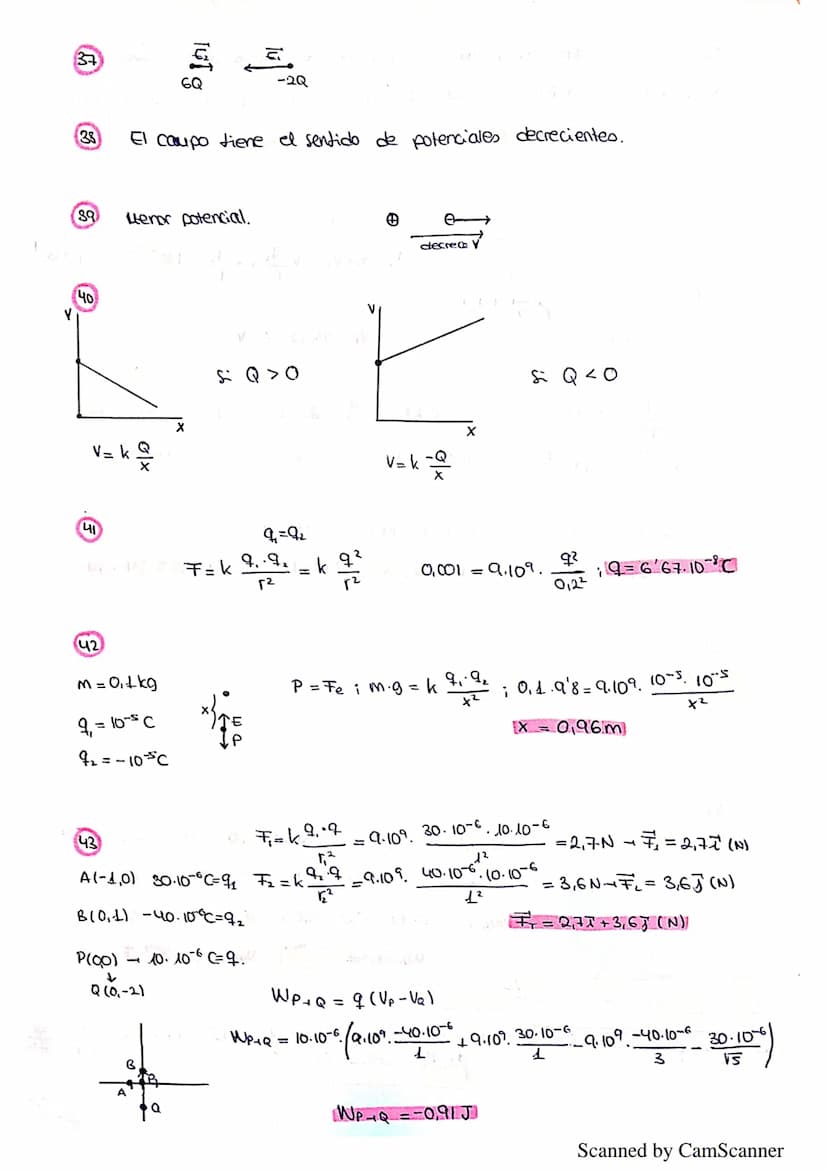 37
E⃗₂ E⃗₁
6Q -2Q
38 El campo tiene el sentido de potenciales decrecientes.
39 Menor potencial. ⊕ ⊖→
decrece V
40
V V
Si Q > 0 Si Q < 0
X X
V = k Q/x V = k -Q/x
41
q₁=q₂
F = k q₁·q₂/r² = k q²/r² 0,001 = 9·10⁹· q²/0,2² ; q = 6'67·10⁻⁸C
42
m = 0,1kg P = Fe ; m·g = k q₁·q₂/x² ; 0,1·9'8 = 9·10⁹· 10⁻⁵·10⁻⁵/x²
q₁ = 10⁻⁵ C x E x = 0,96m
q₂ = -10⁻⁵C P
43 F₁ = k q₁·q/r₁² = 9·10⁹· 30·10⁻⁶·10·10⁻⁶/1² = 2,7N → F⃗₁ = 2,7 i⃗ (N)
A(-1,0) 30·10⁻⁶C=q₁ F₂ = k q₂·q/r₂² = 9·10⁹· 40·10⁻⁶·10·10⁻⁶/1² = 3,6N → F⃗₂ = 3,6 j⃗ (N)
B(0,1) -40·10⁻⁶C=q₂ F⃗T = 2,7 i⃗ + 3,6 j⃗ (N)
P(0,0) → 10·10⁻⁶ C=q.
↓
Q(0,-2) W P→Q = q (Vp - VQ)
W P→Q = 10·10⁻⁶·(9·10⁹· -40·10⁻⁶/1 + 9·10⁹· 30·10⁻⁶/1 - 9·10⁹· -40·10⁻⁶/3 - 30·10⁻⁶/√5)
B
P
A
Q W P→Q = -0,91 J
Scanned by CamScanner